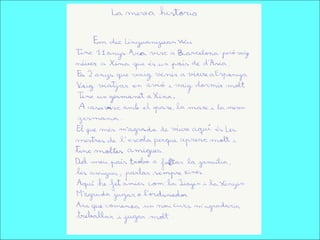 La meva història
Em dic Linguanguan Wu
Tinc 11 anys Ara visc a Barcelona però vaig
néixer a Xina que és un país de d'Àsia.
Fa 2 anys que vaig venir a viure a Espanya
Vaig viatjar en avió i vaig dormir molt
Tinc un germanet a Xina,
A casa visc amb el pare, la mare i la meva
germana.
El que més m'agrada de viure aquí és les
mestres de l'escola perquè aprenc molt i
tinc moltes amigues.
Del meu país trobo a faltar la família,
les amigues, parlar sempre xinès.
Aquí he fet amics com la i la
M'agrada jugar a l'ordinador.
Ara que comença un nou curs m'agradaria
treballar i jugar molt.